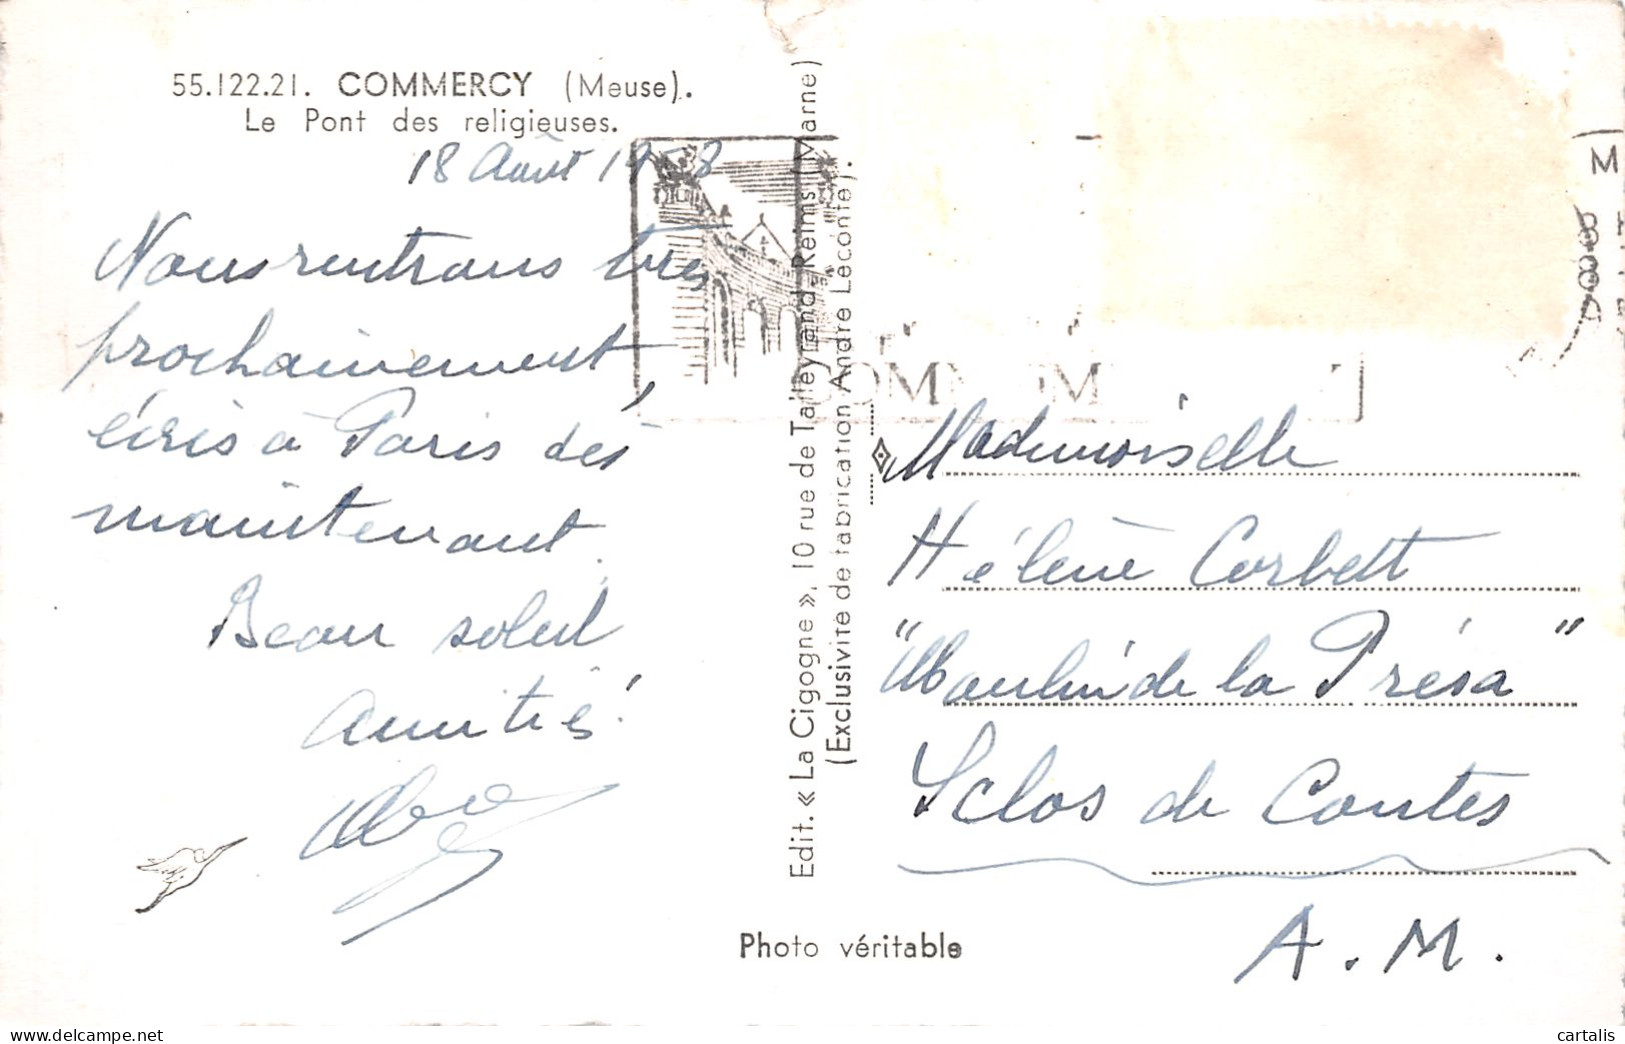 55.122.21. COMMERCY (Meuse).
Le Pont des religieuses.
18 Août 1958
Nous rentrons très
prochainement,
écris à Paris dès
maintenant.
Beau soleil
Amitiés!
Edit. « La Cigogne », 10 rue de Talleyrand - Reims (Marne)
(Exclusivité de fabrication André Leconte).
COMM
Mademoiselle
Hélène Corbett
"Moulin de la Présa"
Sclos de Contes
A.M.
Photo véritable
www.delcampe.net
cartalis